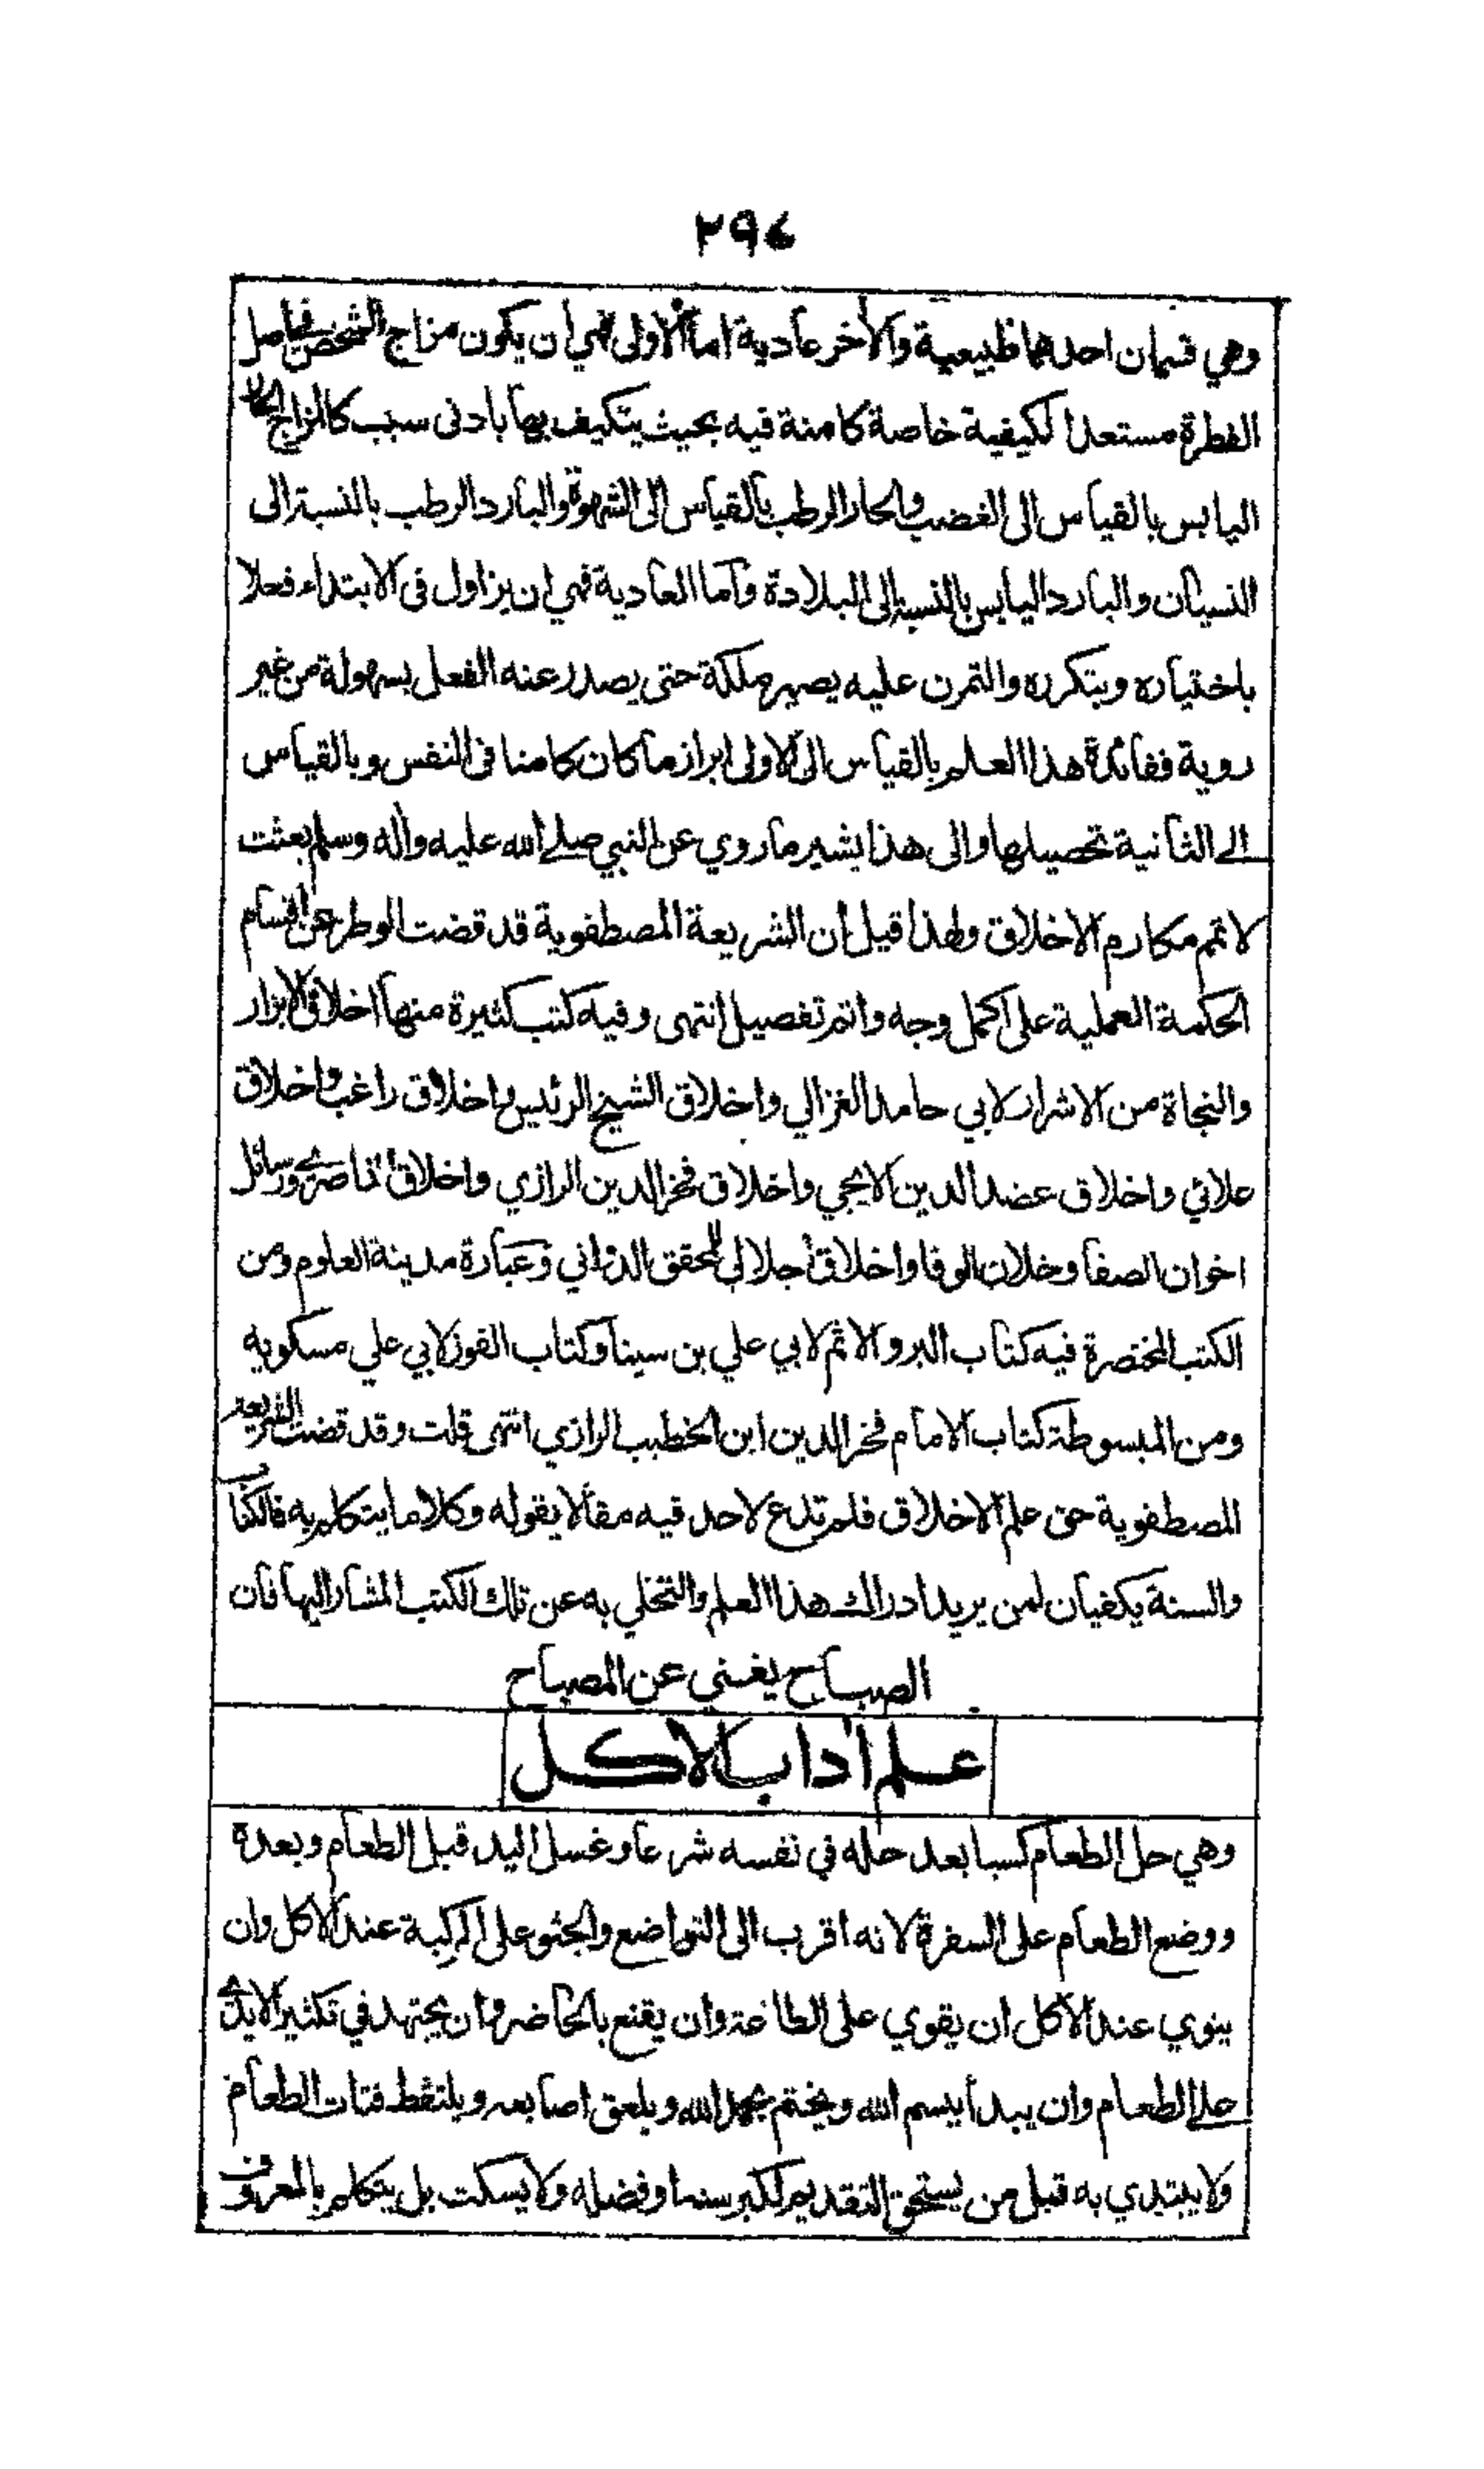 ٢٩٤
وهي قسمان احدهما طبيعية والآخر عادية اما الاولى فهي ان يكون مزاج الشخص في اصل
الفطرة مستعدا لكيفية خاصة كامنة فيه بحيث يتكيف بها بادنى سبب كالمزاج الحار
اليابس بالقياس الى الغضب والحار الرطب بالقياس الى الشهوة والبارد الرطب بالنسبة الى
النسيان والبارد اليابس بالنسبة الى البلادة واما العادية فهي ان يزاول في الابتداء فعلا
باختياره وبتكرره والتمرن عليه يصير ملكة حتى يصدر عنه الفعل بسهولة من غير
روية ففائدة هذا العلم بالقياس الى الاولى ابراز ما كان كامنا في النفس وبالقياس
الى الثانية تحصيلها والى هذا يشير ما روي عن النبي صلى الله عليه واله وسلم بعثت
لاتمم مكارم الاخلاق ولهذا قيل ان الشريعة المصطفوية قد قضت الوطر عن اقسام
الحكمة العملية على اكمل وجه واتم تفصيل انتهى وفيه كتب كثيرة منها اخلاق الابرار
والنجاة من الاشرار لابي حامد الغزالي واخلاق الشيخ الرئيس واخلاق راغب واخلاق
علائي واخلاق عضد الدين الايجي واخلاق فخر الدين الرازي واخلاق ناصري ورسائل
اخوان الصفا وخلان الوفا واخلاق جلالي للمحقق الدواني وعبارة مدينة العلوم ومن
الكتب المختصرة فيه كتاب البر والاثم لابي علي بن سينا وكتاب الفوز لابي علي مسكويه
ومن المبسوطة كتاب الامام فخر الدين ابن الخطيب الرازي انتهى قلت وقد قضت الشريعة
المصطفوية حق علم الاخلاق فلم تدع لاحد فيه مقالا يقوله وكلاما يتكلم به فالكتاب
والسنة يكفيان لمن يريد ادراك هذا العلم والتخلي به عن تلك الكتب المشار اليها فان
الصباح يغني عن المصباح
علم اداب الاكل
وهي حل الطعام كسبا بعد حله في نفسه شرعا وغسل اليد قبل الطعام وبعده
ووضع الطعام على السفرة لانه اقرب الى التواضع والجثو على الركبة عند الاكل وان
ينوي عند الاكل ان يقوي على الطاعة وان يقنع بالحاضر وان يجتهد في تكثير الايدي
على الطعام وان يبدأ ببسم الله ويختم بحمد الله ويلعق اصابعه ويلتقط فتات الطعام
ولا يبتدي به قبل من يستحق التقديم لكبر سنه او فضله ولا يسكت بل يتكلم بالمعروف